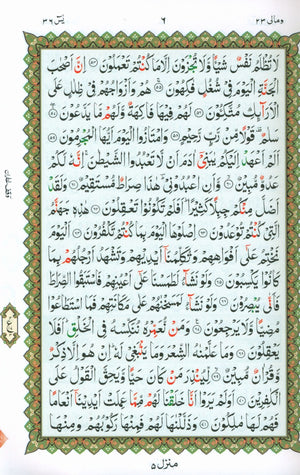 ومالی ۲۳ ۶ یٰسٓ ۳۶
لَا تُظْلَمُ نَفْسٌ شَیْـًٔا وَّلَا تُجْزَوْنَ اِلَّا مَا كُنْتُمْ تَعْمَلُوْنَ ﴿۵۴﴾ اِنَّ اَصْحٰبَ
الْجَنَّةِ الْیَوْمَ فِیْ شُغُلٍ فٰكِهُوْنَ ﴿۵۵﴾ هُمْ وَاَزْوَاجُهُمْ فِیْ ظِلٰلٍ عَلَی
الْاَرَآىِٕكِ مُتَّكِـُٔوْنَ ﴿۵۶﴾ لَهُمْ فِیْهَا فَاكِهَةٌ وَّلَهُمْ مَّا یَدَّعُوْنَ ﴿۵۷﴾
سَلٰمٌ قَوْلًا مِّنْ رَّبٍّ رَّحِیْمٍ ﴿۵۸﴾ وَامْتَازُوا الْیَوْمَ اَیُّهَا الْمُجْرِمُوْنَ ﴿۵۹﴾
اَلَمْ اَعْهَدْ اِلَیْكُمْ یٰبَنِیْۤ اٰدَمَ اَنْ لَّا تَعْبُدُوا الشَّیْطٰنَ اِنَّهٗ لَكُمْ
عَدُوٌّ مُّبِیْنٌ ﴿۶۰﴾ وَّاَنِ اعْبُدُوْنِیْ هٰذَا صِرَاطٌ مُّسْتَقِیْمٌ ﴿۶۱﴾ وَلَقَدْ
اَضَلَّ مِنْكُمْ جِبِلًّا كَثِیْرًا اَفَلَمْ تَكُوْنُوْا تَعْقِلُوْنَ ﴿۶۲﴾ هٰذِهٖ جَهَنَّمُ
الَّتِیْ كُنْتُمْ تُوْعَدُوْنَ ﴿۶۳﴾ اِصْلَوْهَا الْیَوْمَ بِمَا كُنْتُمْ تَكْفُرُوْنَ ﴿۶۴﴾ اَلْیَوْمَ
نَخْتِمُ عَلٰۤی اَفْوَاهِهِمْ وَتُكَلِّمُنَاۤ اَیْدِیْهِمْ وَتَشْهَدُ اَرْجُلُهُمْ بِمَا
كَانُوْا یَكْسِبُوْنَ ﴿۶۵﴾ وَلَوْ نَشَآءُ لَطَمَسْنَا عَلٰۤی اَعْیُنِهِمْ فَاسْتَبَقُوا الصِّرَاطَ
فَاَنّٰی یُبْصِرُوْنَ ﴿۶۶﴾ وَلَوْ نَشَآءُ لَمَسَخْنٰهُمْ عَلٰی مَكَانَتِهِمْ فَمَا اسْتَطَاعُوْا
مُضِیًّا وَّلَا یَرْجِعُوْنَ ﴿۶۷﴾ وَمَنْ نُّعَمِّرْهُ نُنَكِّسْهُ فِی الْخَلْقِ اَفَلَا
یَعْقِلُوْنَ ﴿۶۸﴾ وَمَا عَلَّمْنٰهُ الشِّعْرَ وَمَا یَنْۢبَغِیْ لَهٗ اِنْ هُوَ اِلَّا ذِكْرٌ
وَّقُرْاٰنٌ مُّبِیْنٌ ﴿۶۹﴾ لِّیُنْذِرَ مَنْ كَانَ حَیًّا وَّیَحِقَّ الْقَوْلُ عَلَی
الْكٰفِرِیْنَ ﴿۷۰﴾ اَوَلَمْ یَرَوْا اَنَّا خَلَقْنَا لَهُمْ مِّمَّا عَمِلَتْ اَیْدِیْنَاۤ اَنْعَامًا
فَهُمْ لَهَا مٰلِكُوْنَ ﴿۷۱﴾ وَذَلَّلْنٰهَا لَهُمْ فَمِنْهَا رَكُوْبُهُمْ وَمِنْهَا
منزل ۵